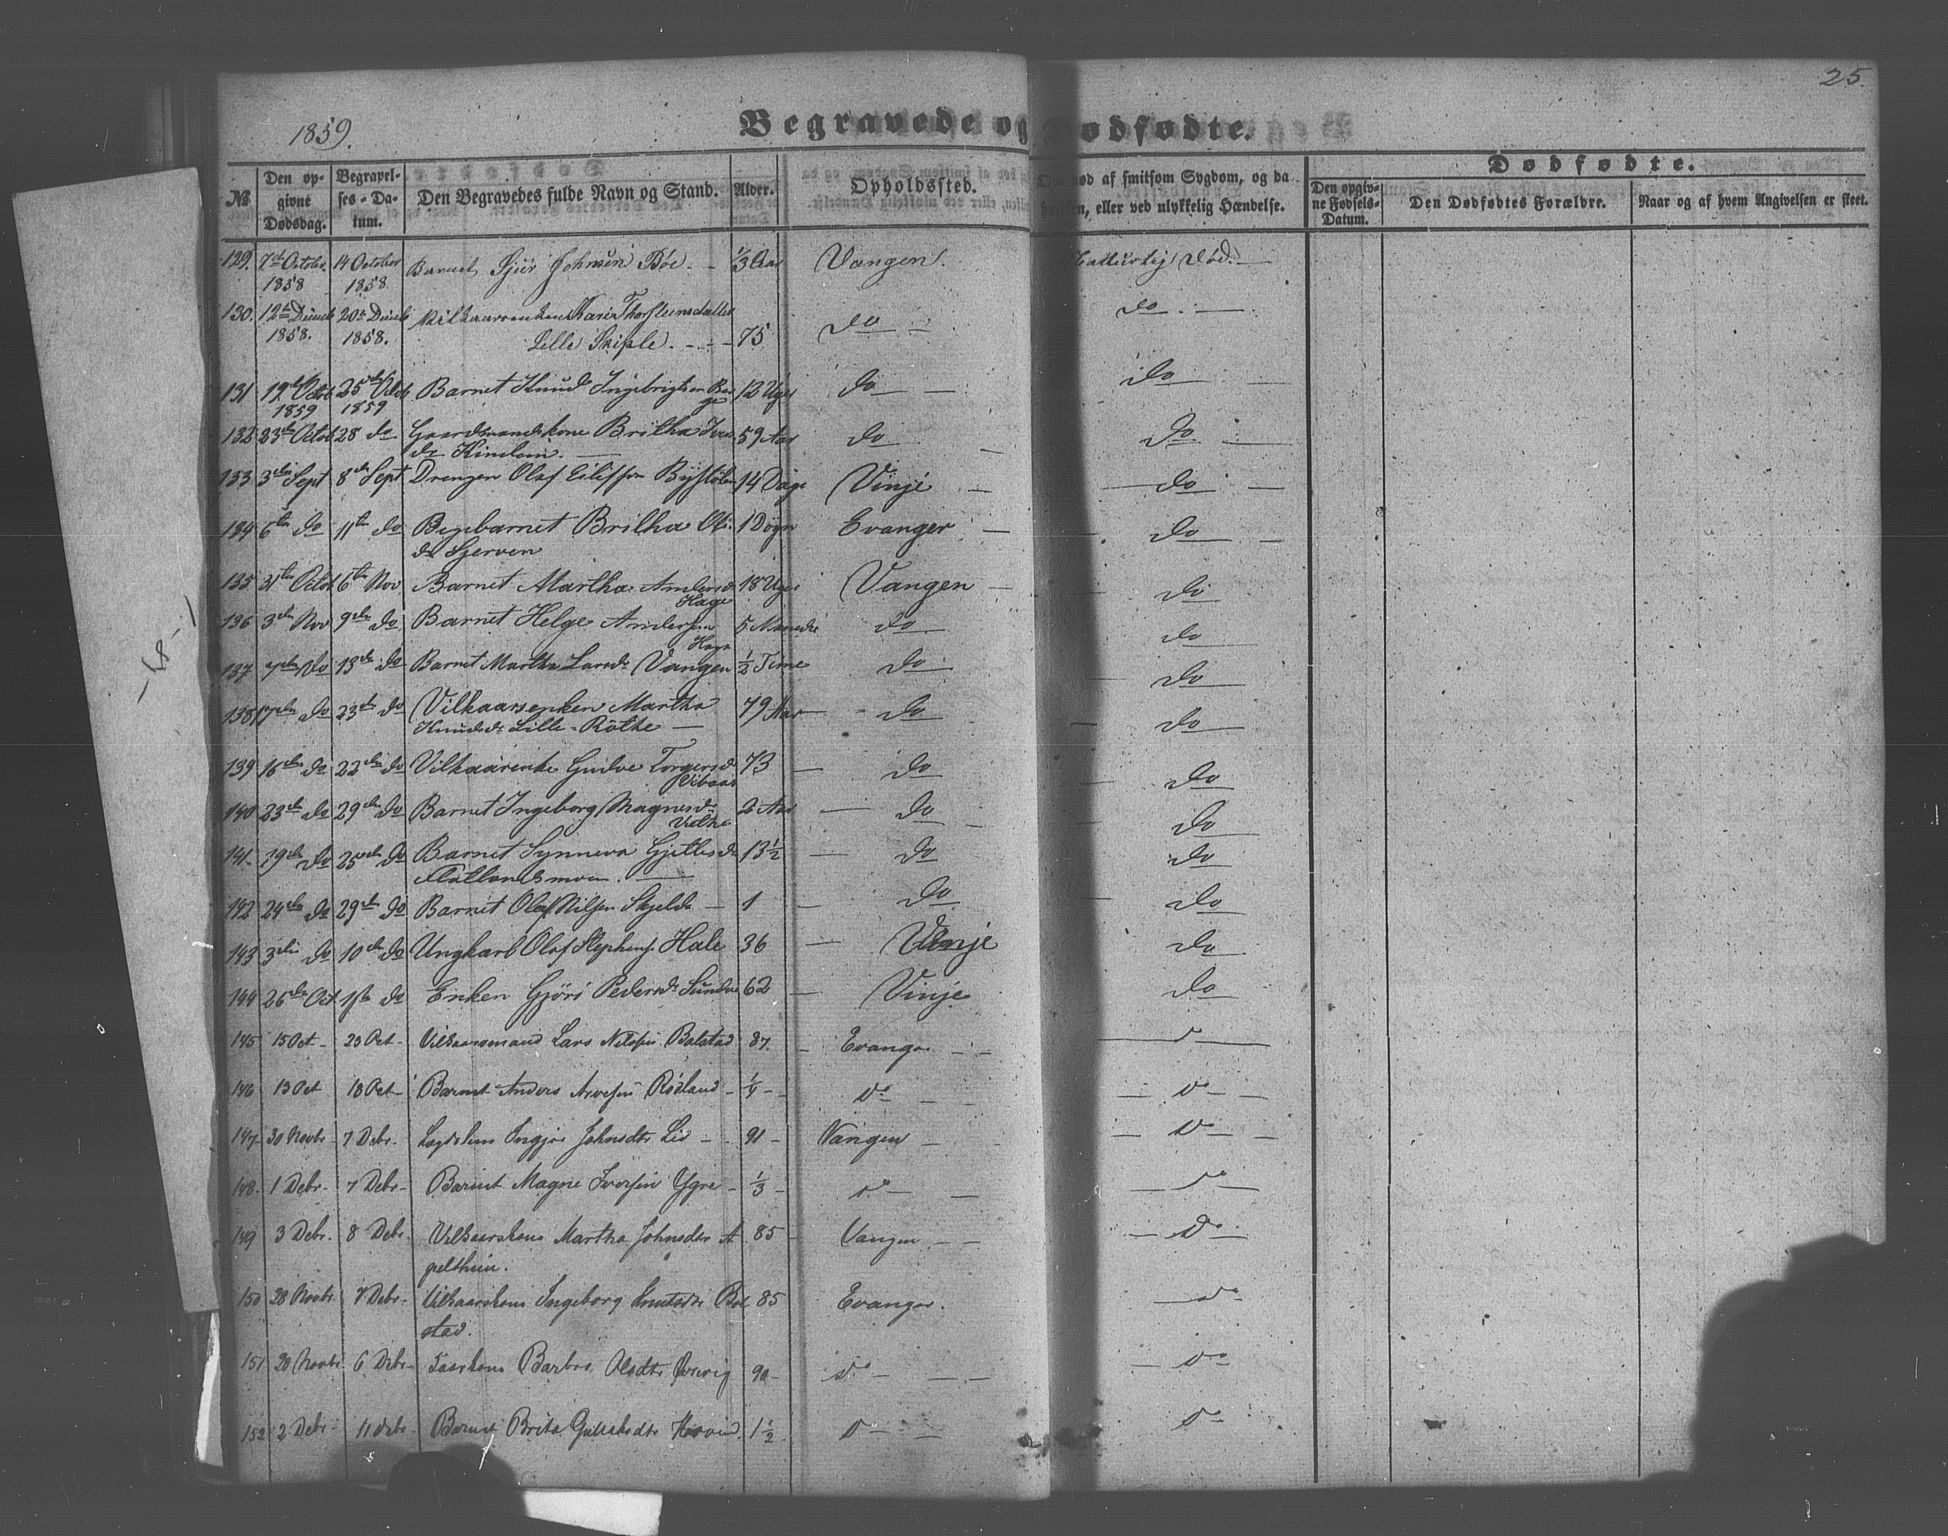 25.
1859.
Begravede og Dødfødte.
Dødfødte.
№ Den opgivne Dødsdag. Begravelses-Datum. Den Begravedes fulde Navn og Stand. Alder. Opholdssted. død af smitsom Sygdom, og da hvilken, eller ved ulykkelig Hændelse. Den opgivne Fødsels-Datum. Den Dødfødtes Forældre. Naar og af hvem Angivelsen er skeet.
129. 7de Octobr. 14 October Barnet Sjur Johnsen Bøe. - 1/3 Aar Vangen. Naturlig Død.
1858 1858
130. 12te 20de Karie Thorsteinsdatter do do
1858. 1858. Lille Skiple. - - - 75
131 19de Octob 25de Octb Barnet Knud Ingebrigtsen 12 Uger do do
1859 1859
132 23de Octob 28 do Gaardmandskone Britha 59 Aar do do
133 3die Sept 8de Sept Drengen Olaf Eilifsen 14 Dage Vinje do
134 6te do 11te do Britha 1 Døgn Evanger do
135 31te Octob 6te Nov Barnet Martha Andersd 18 Uger Vangen do
Hage
136 3die Nov 9de do Barnet Helge Andersen 5 Maneder do do
Hage
137 7de do 13de do Barnet Martha Larsdr Vangen 1/2 Time do do
138 17de do 23de do Vilkaarsenken Martha 79 Aar do do
Knudsdr Lille-Røthe
139 16de do 22de do Vilkaarenke Gudve Torgersd 73 do do
140 23de do 29de do Barnet Ingeborg Magnesdr 2 Aar do do
141. 19de do 25de do Barnet Synneva Gjetlesdr 13 1/2 do do
Flatlandsmoen.
142 24de do 29de do Barnet Olaf Nilsen Skjelde 1 do do
143 3die do 10de do Ungkarl Olaf Stephens Hale 36 Vinje do
144 26de Oct 1ste do Enken Gjøri Pedersdr Sundve 62 Vinje do
145 15 Oct - 23 Oct - Vilkaarsmand Lars Nilsen Bolstad 87. Evanger do
146 13 Oct 18 Oct - Barnet Anders Arvesen Rødland - 1/4 - do do
147 30 Novbr 7 Debr. Ingjer Johnsdtr Lid - 91 - Vangen do
148. 1 Debr. 7 Debr. Barnet Magne Iversen Ygre - 1/3 - do do
149 3 Debr. 8 Debr. Vilkaarskone Martha Johnsdtr A 85 - Vangen do
pelthun.
150 28 Novbr. 7 Debr. Vilkaarskone Ingeborg Knutsdtr Bol 85 Evanger. do
stad.
151 30 Novbr. 6 Debr - Barbro Olsdtr 90 - do do
152 2 Debr - 11 Debr. Barnet Brita 1 1/2 do do